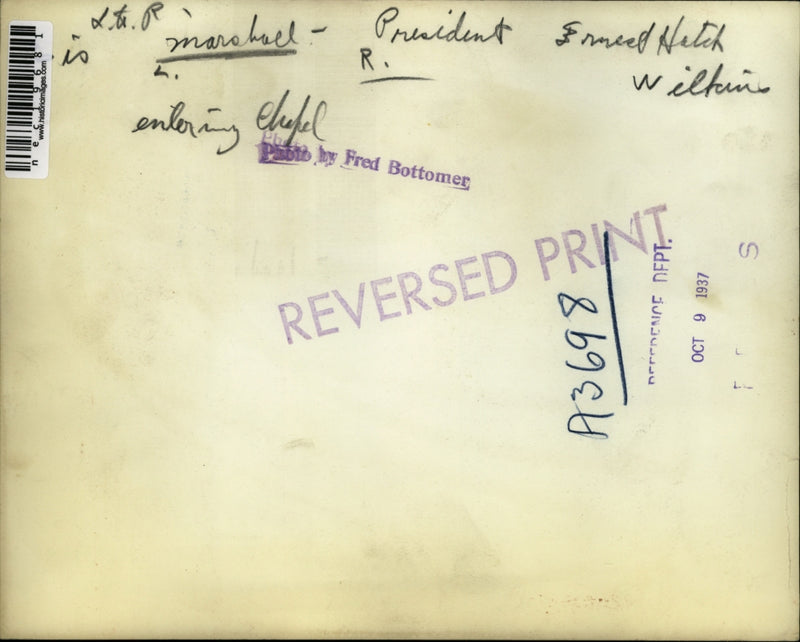 L to R
is marshall - President Ernest Hatch
L. R. Wilkins
entering Chapel
Photo by Fred Bottomer
REVERSED PRINT
A3698
REFERENCE DEPT.
OCT 9 1937
S
nec19681
www.historicimages.com